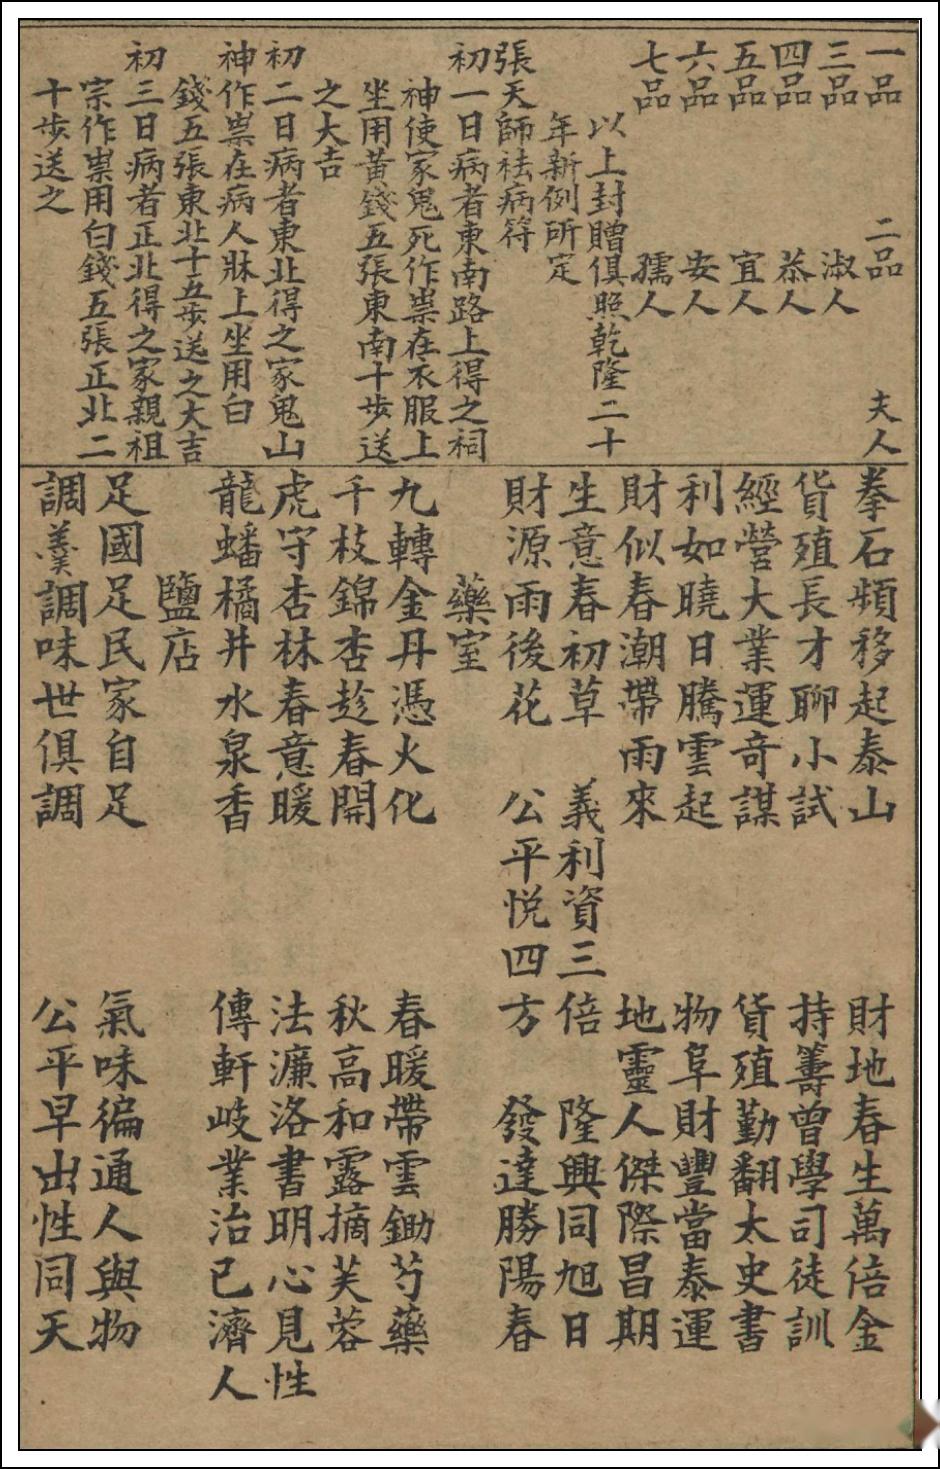 一品　二品　夫人
三品　淑人
四品　恭人
五品　宜人
六品　安人
七品　孺人
以上封贈俱照乾隆二十
年新例所定
張天師祛病符
初一日病者東南路上得之祠
神使家鬼死作祟在衣服上
坐用黃錢五張東南十步送
之大吉
初二日病者東北得之家鬼山
神作祟在病人牀上坐用白
錢五張東北十五步送之大吉
初三日病者正北得之家親祖
宗作祟用白錢五張正北二
十步送之
拳石頻移起泰山　財地春生萬倍金
貨殖長才聊小試　持籌曾學司徒訓
經營大業運奇謀　貨殖勤翻太史書
利如曉日騰雲起　物阜財豐當泰運
財似春潮帶雨來　地靈人傑際昌期
生意春初草　義利資三倍　隆興同旭日
財源雨後花　公平悅四方　發達勝陽春
藥室
九轉金丹憑火化　春暖帶雲鋤芍藥
千枝錦杏趁春開　秋高和露摘芙蓉
虎守杏林春意暖　法濂洛書明心見性
龍蟠橘井水泉香　傳軒岐業治已濟人
鹽店
足國足民家自足　氣味徧通人與物
調羹調味世俱調　公平早出性同天